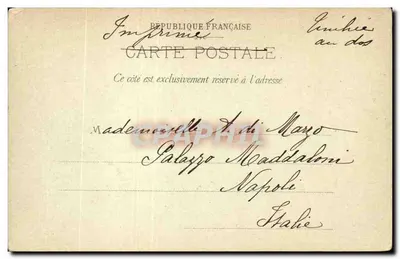 RÉPUBLIQUE FRANÇAISE
Imprimé
Timbre
au dos
CARTE POSTALE
Ce côté est exclusivement réservé à l'adresse
Mademoiselle A. di Marzo
Palazzo Maddaloni
Napoli
Italie